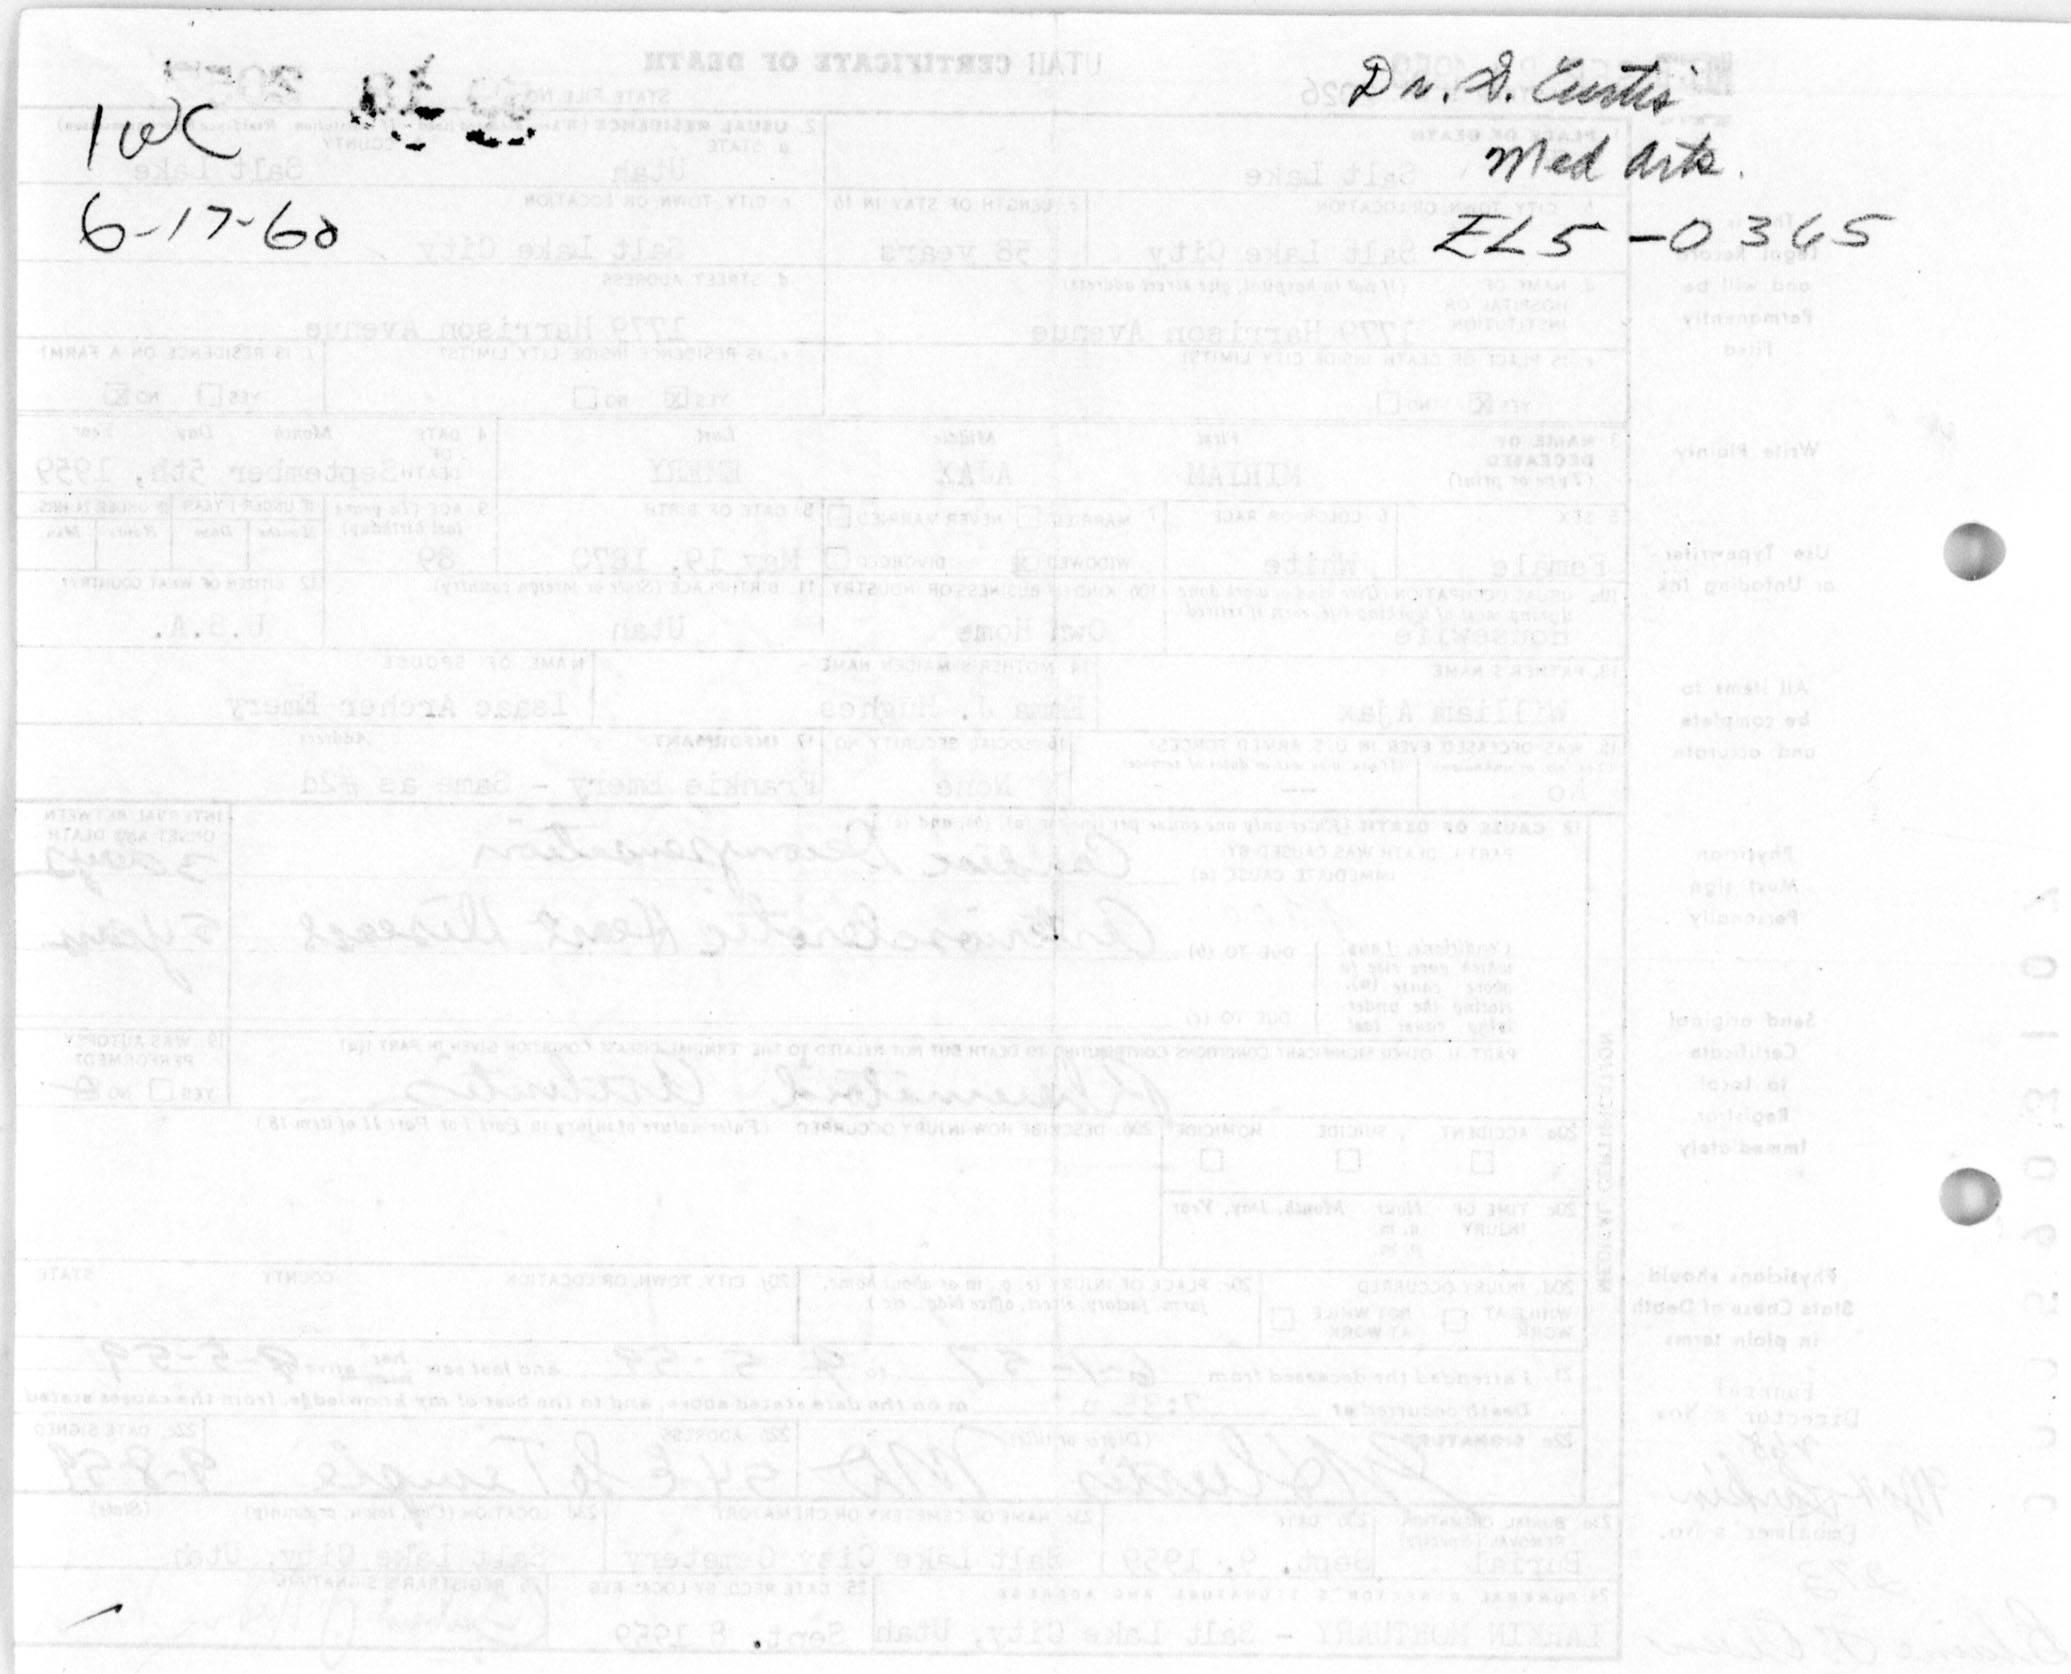 Dr. D. Curtis
1WC
Med Arts.
6-17-60
EL5-0365
UTAH CERTIFICATE OF DEATH
STATE FILE NO.
1. PLACE OF DEATH
2. USUAL RESIDENCE
a. STATE
COUNTY
Salt Lake
Utah
Salt Lake
b. CITY, TOWN, OR LOCATION
c. LENGTH OF STAY IN 1b
c. CITY, TOWN, OR LOCATION
Salt Lake City
58 years
Salt Lake City
d. NAME OF HOSPITAL OR INSTITUTION
(If not in hospital, give street address)
d. STREET ADDRESS
1779 Harrison Avenue
1779 Harrison Avenue
e. IS PLACE OF DEATH INSIDE CITY LIMITS?
e. IS RESIDENCE INSIDE CITY LIMITS?
f. IS RESIDENCE ON A FARM?
YES X NO
YES X NO
YES NO X
3. NAME OF DECEASED (Type or print)
First Middle Last
4. DATE OF DEATH
Month Day Year
MIRIAM AJAX EMERY
September 5th, 1959
5. SEX
6. COLOR OR RACE
7. MARRIED NEVER MARRIED
WIDOWED X DIVORCED
8. DATE OF BIRTH
9. AGE (In years last birthday)
IF UNDER 1 YEAR
IF UNDER 24 HRS.
Female
White
May 19, 1870
89
10a. USUAL OCCUPATION (Give kind of work done during most of working life, even if retired)
10b. KIND OF BUSINESS OR INDUSTRY
11. BIRTHPLACE (State or foreign country)
12. CITIZEN OF WHAT COUNTRY?
Housewife
Own Home
Utah
U.S.A.
13. FATHER'S NAME
14. MOTHER'S MAIDEN NAME
NAME OF SPOUSE
William Ajax
Emma J. Hughes
Isaac Archer Emery
15. WAS DECEASED EVER IN U.S. ARMED FORCES?
16. SOCIAL SECURITY NO.
17. INFORMANT
Address
No
--
None
Frankie Emery - Same as #2d
18. CAUSE OF DEATH (Enter only one cause per line for (a), (b), and (c).)
INTERVAL BETWEEN ONSET AND DEATH
PART I. DEATH WAS CAUSED BY:
IMMEDIATE CAUSE (a)
Cardiac Decompensation
3 days
Conditions, if any, which gave rise to above cause (a), stating the underlying cause last
DUE TO (b)
Arteriosclerotic Heart Disease
5 years
DUE TO (c)
PART II. OTHER SIGNIFICANT CONDITIONS CONTRIBUTING TO DEATH BUT NOT RELATED TO THE TERMINAL DISEASE CONDITION GIVEN IN PART I(a)
19. WAS AUTOPSY PERFORMED?
YES NO
Rheumatoid Arthritis
20a. ACCIDENT SUICIDE HOMICIDE
20b. DESCRIBE HOW INJURY OCCURRED. (Enter nature of injury in Part I or Part II of item 18.)
20c. TIME OF INJURY
Hour Month, Day, Year
a. m.
p. m.
20d. INJURY OCCURRED
WHILE AT WORK
NOT WHILE AT WORK
20e. PLACE OF INJURY (e. g., in or about home, farm, factory, street, office bldg., etc.)
20f. CITY, TOWN, OR LOCATION
COUNTY
STATE
21. I attended the deceased from 6-1-57 to 9-5-59 and last saw her alive 9-5-59
Death occurred at m on the date stated above, and to the best of my knowledge, from the causes stated
22a. SIGNATURE
(Degree or title)
22b. ADDRESS
22c. DATE SIGNED
Curtis MD
54 E So Temple
9-8-59
23a. BURIAL, CREMATION, REMOVAL (Specify)
23b. DATE
23c. NAME OF CEMETERY OR CREMATORY
23d. LOCATION (City, town, or county)
(State)
Burial
Sept. 9, 1959
Salt Lake City Cemetery
Salt Lake City, Utah
24. FUNERAL DIRECTOR'S SIGNATURE AND ADDRESS
25. DATE RECD. BY LOCAL REG.
26. REGISTRAR'S SIGNATURE
LARKIN MORTUARY - Salt Lake City, Utah
Sept. 8 1959
MEDICAL CERTIFICATION
Legal Record
and will be
Permanently
Filed
Write Plainly
Use Typewriter
or Unfading Ink
All items to
be complete
and accurate
Physician
Must sign
Personally
Send original
Certificate
to local
Registrar
Immediately
Physicians should
State Cause of Death
in plain terms
Funeral
Director's No.
Embalmer's No.
273